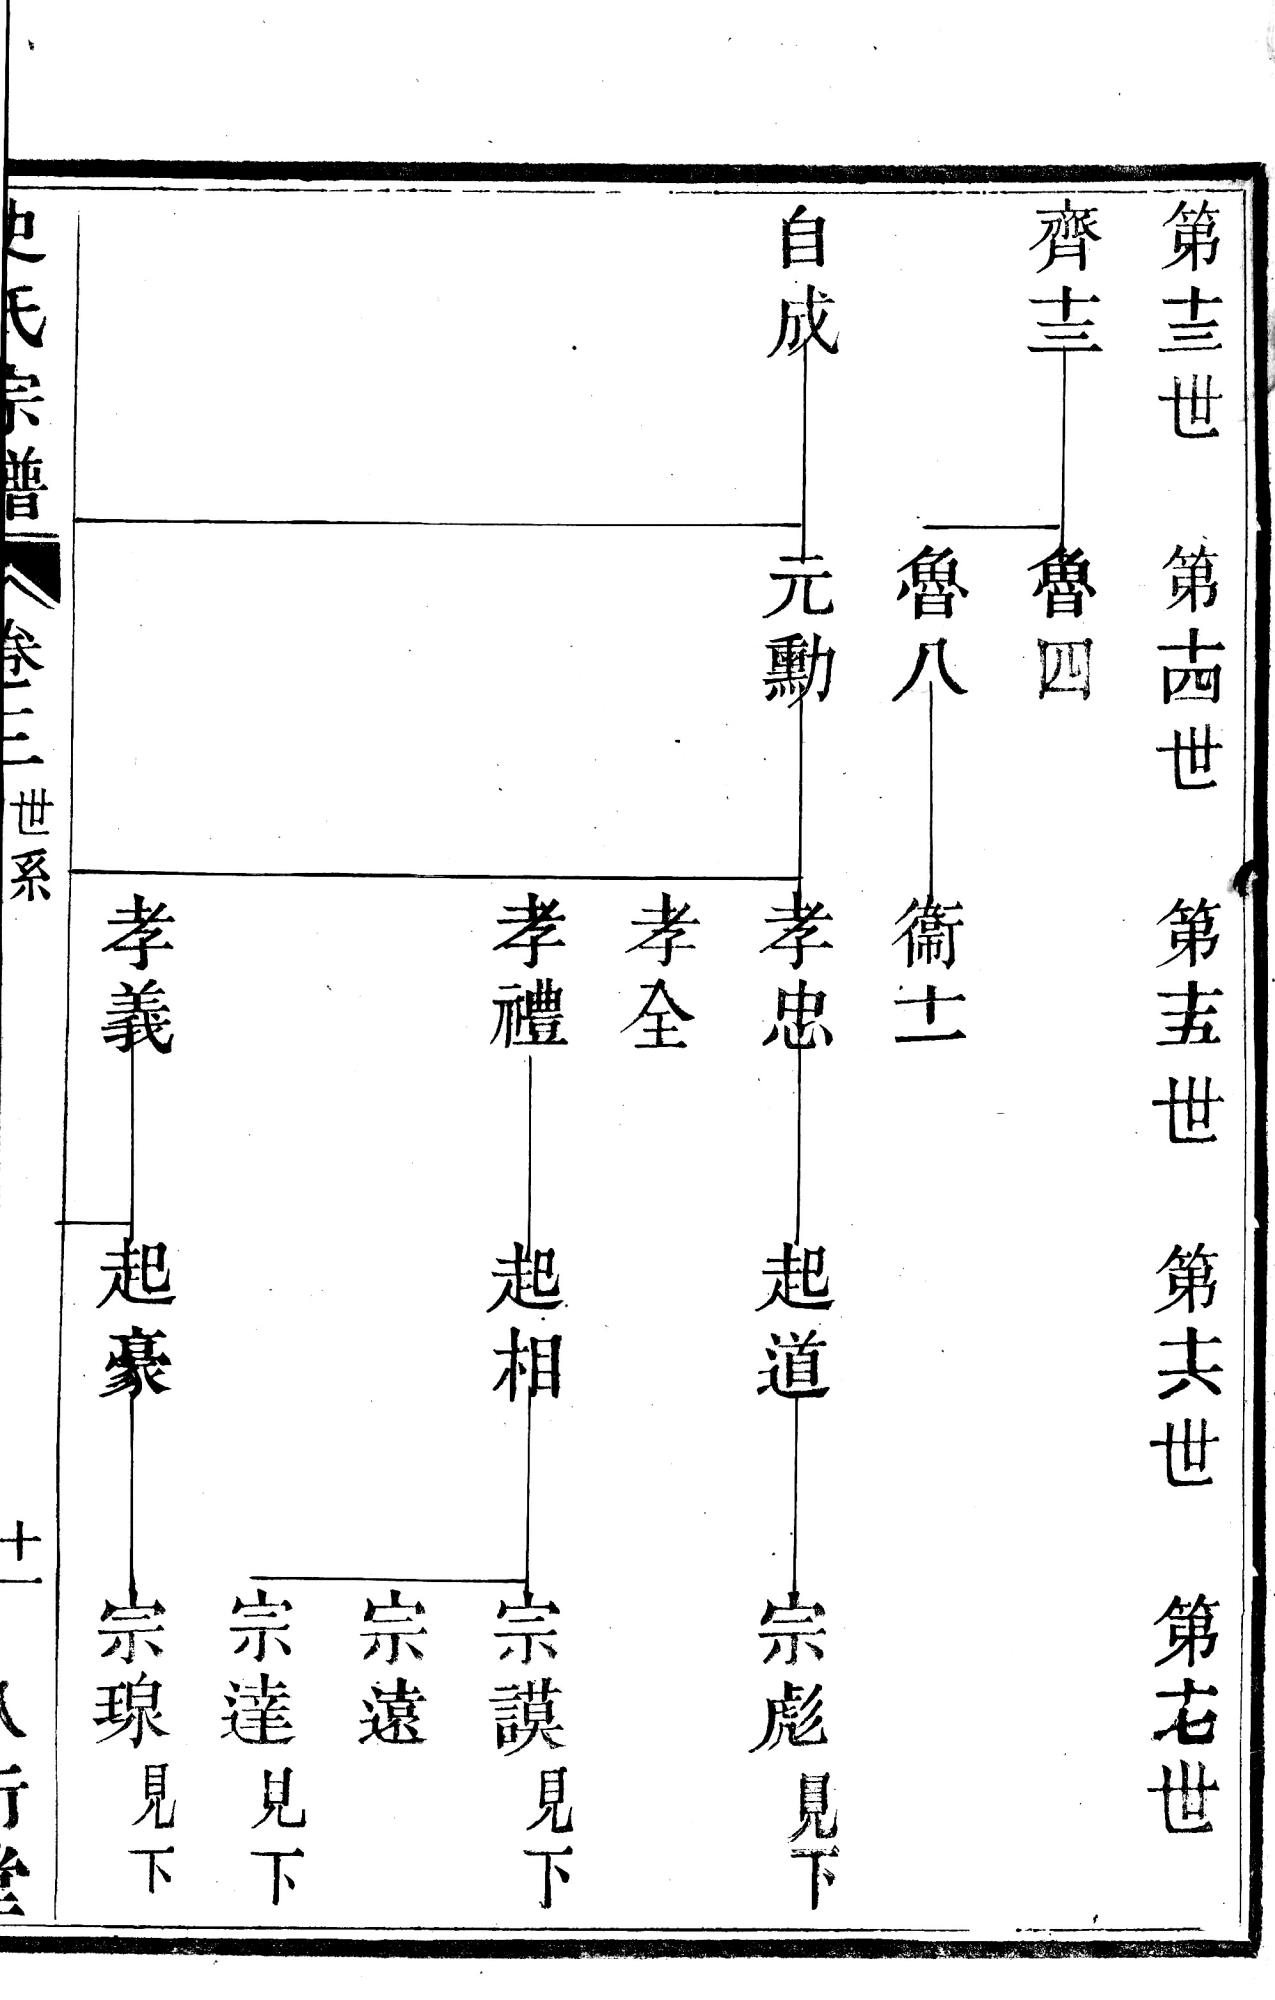 第十三世
第十四世
第十五世
第十六世
第十七世
齊十三
魯四
魯八
衞十一
自成
元勳
孝忠
起道
宗彪見下
孝全
孝禮
起相
宗謨見下
宗遠
宗達見下
孝義
起豪
宗琅見下
史氏宗譜
卷三
世系
十一
八行堂